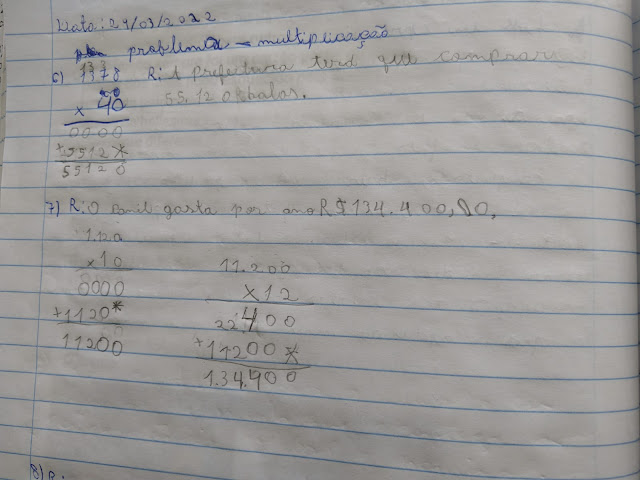 Data: 29/03/2022
problema - multiplicação
133
6) 1378 R: A prefeitura terá que comprar
x 40 55.120 balas.
0000
+5512*
55120
7) R: O Danil gasta por ano R$ 134.400,00.
1.120
x10
0000
+1120*
11200
11.200
x12
22400
+11200*
134.400
8) R: